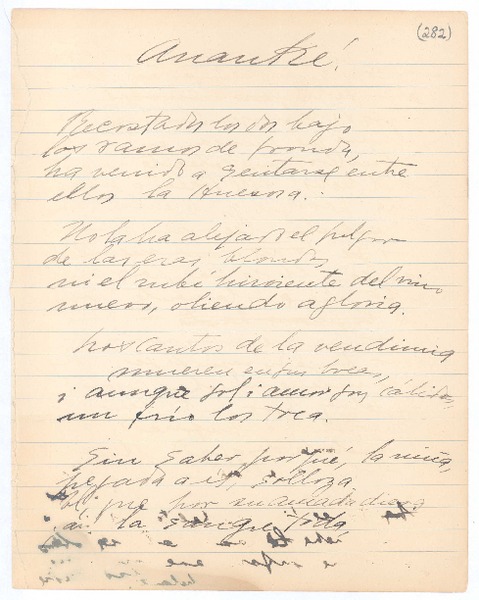 (282)
Ananké.
Recostados los dos bajo
los ramos de fronda,
ha venido a sentarse entre
ellos la Huesosa.
No la ha alejado el fulgor
de las eras blondas,
ni el rubí hiriente del vino
nuevo, oliendo a gloria.
Los cantos de la vendimia
mueren en sus bocas,
i aunque sol i amor son cálidos,
un frío los toca.
Sin saber por qué, la niña,
pegada a él, solloza.
que por su amada diera
la sangre toda